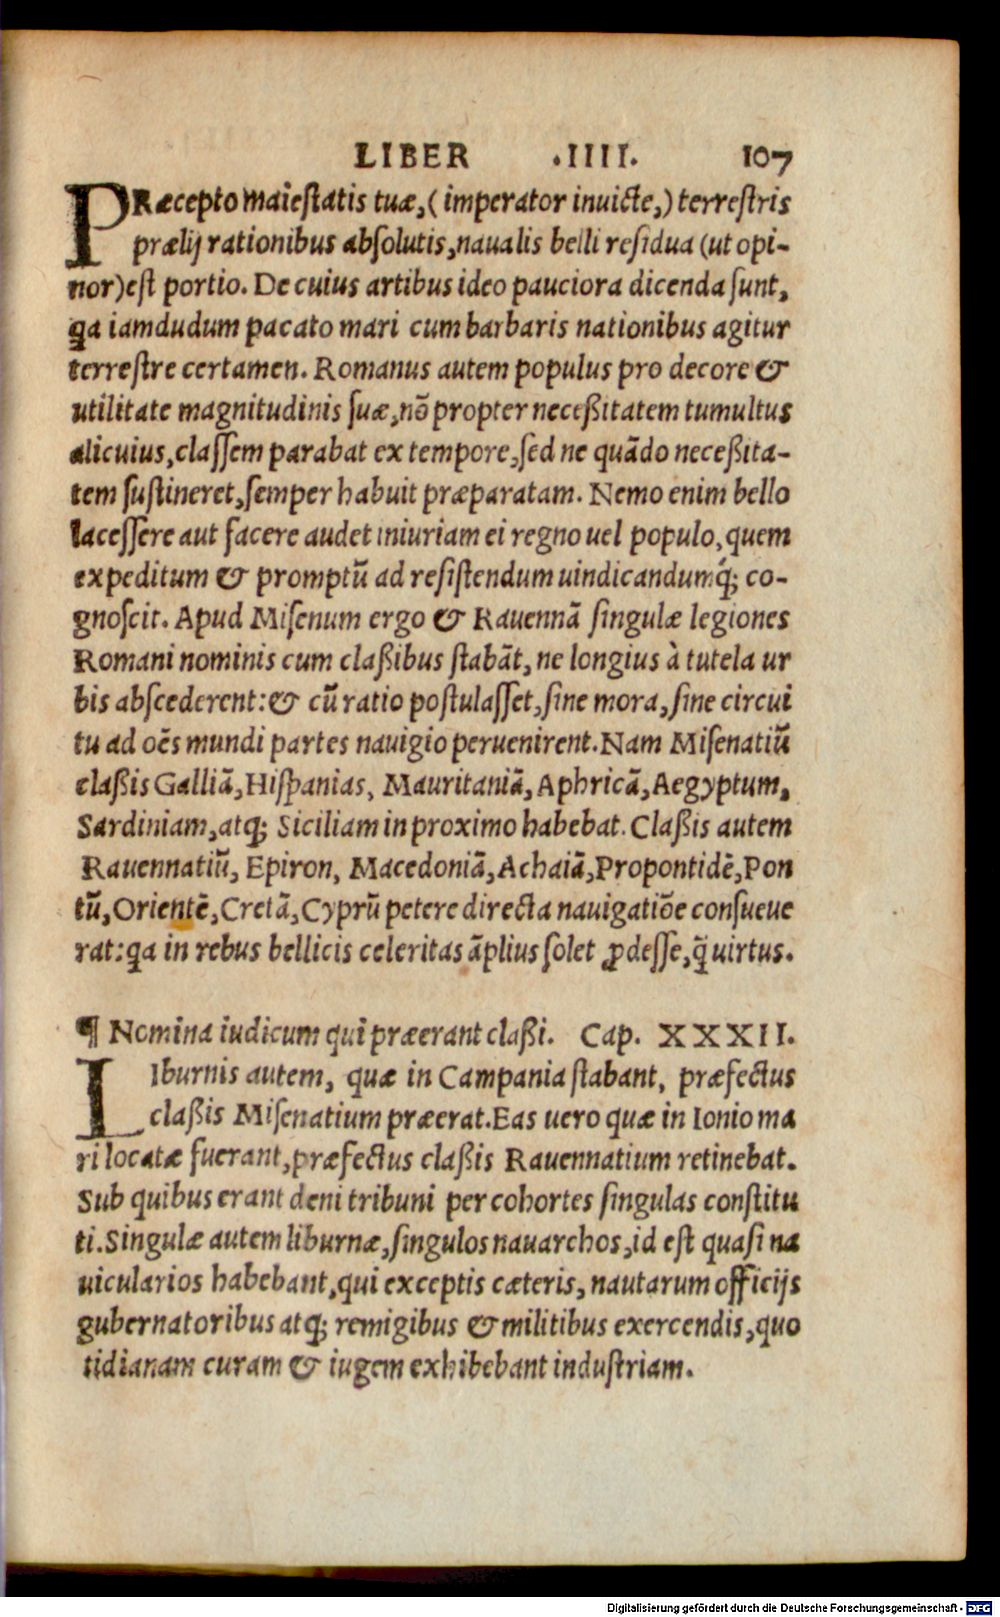 LIBER .IIII. 107
PRæcepto maiestatis tuæ,( imperator inuicte,) terrestris
prælij rationibus absolutis,naualis belli residua (ut opi-
nor)est portio. De cuius artibus ideo pauciora dicenda sunt,
ꝗa iamdudum pacato mari cum barbaris nationibus agitur
terrestre certamen. Romanus autem populus pro decore &
utilitate magnitudinis suæ,nõ propter neceßitatem tumultus
alicuius,classem parabat ex tempore,sed ne quãdo neceßita-
tem sustineret,semper habuit præparatam. Nemo enim bello
lacessere aut facere audet iniuriam ei regno uel populo,quem
expeditum & promptũ ad resistendum uindicandumq́; co-
gnoscit. Apud Misenum ergo & Rauennã singulæ legiones
Romani nominis cum claßibus stabãt, ne longius à tutela ur
bis abscederent:& cũ ratio postulasset,sine mora,sine circui
tu ad oẽs mundi partes nauigio peruenirent.Nam Misenatiũ
claßis Galliã,Hispanias, Mauritaniã,Aphricã,Aegyptum,
Sardiniam,atq; Siciliam in proximo habebat. Claßis autem
Rauennatiũ, Epiron, Macedoniã,Achaiã,Propontidẽ,Pon
tũ,Orientẽ,Cretã,Cyprũ petere directa nauigatiõe consueue
rat:ꝗa in rebus bellicis celeritas ãplius solet ꝓdesse,q̃ uirtus.
¶ Nomina iudicum qui præerant claßi. Cap. XXXII.
LIburnis autem, quæ in Campania stabant, præfectus
claßis Misenatium præerat.Eas uero quæ in Ionio ma
ri locatæ fuerant,præfectus claßis Rauennatium retinebat.
Sub quibus erant deni tribuni per cohortes singulas constitu
ti.Singulæ autem liburnæ,singulos nauarchos,id est quasi na
uicularios habebant,qui exceptis cæteris, nautarum officijs
gubernatoribus atq; remigibus & militibus exercendis,quo
tidianam curam & iugem exhibebant industriam.
Digitalisierung gefördert durch die Deutsche Forschungsgemeinschaft - DFG